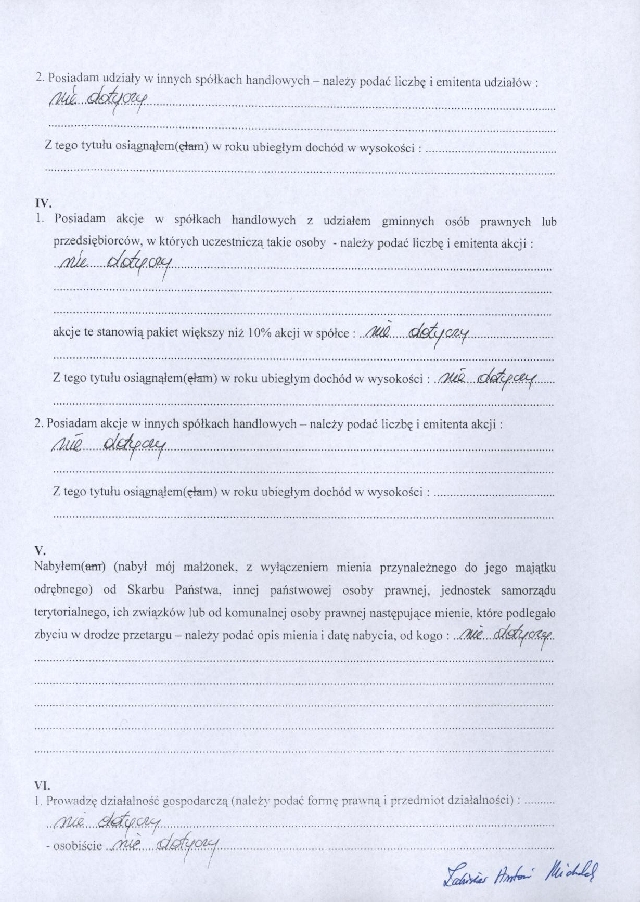 2. Posiadam udziały w innych spółkach handlowych – należy podać liczbę i emitenta udziałów :
nie dotyczy
Z tego tytułu osiągnąłem(ęłam) w roku ubiegłym dochód w wysokości :
IV.
1. Posiadam akcje w spółkach handlowych z udziałem gminnych osób prawnych lub
przedsiębiorców, w których uczestniczą takie osoby - należy podać liczbę i emitenta akcji :
nie dotyczy
akcje te stanowią pakiet większy niż 10% akcji w spółce : nie dotyczy
Z tego tytułu osiągnąłem(ęłam) w roku ubiegłym dochód w wysokości : nie dotyczy
2. Posiadam akcje w innych spółkach handlowych – należy podać liczbę i emitenta akcji :
nie dotyczy
Z tego tytułu osiągnąłem(ęłam) w roku ubiegłym dochód w wysokości :
V.
Nabyłem(am) (nabył mój małżonek, z wyłączeniem mienia przynależnego do jego majątku
odrębnego) od Skarbu Państwa, innej państwowej osoby prawnej, jednostek samorządu
terytorialnego, ich związków lub od komunalnej osoby prawnej następujące mienie, które podlegało
zbyciu w drodze przetargu – należy podać opis mienia i datę nabycia, od kogo : nie dotyczy
VI.
1. Prowadzę działalność gospodarczą (należy podać formę prawną i przedmiot działalności) :
nie dotyczy
- osobiście nie dotyczy
Antoni